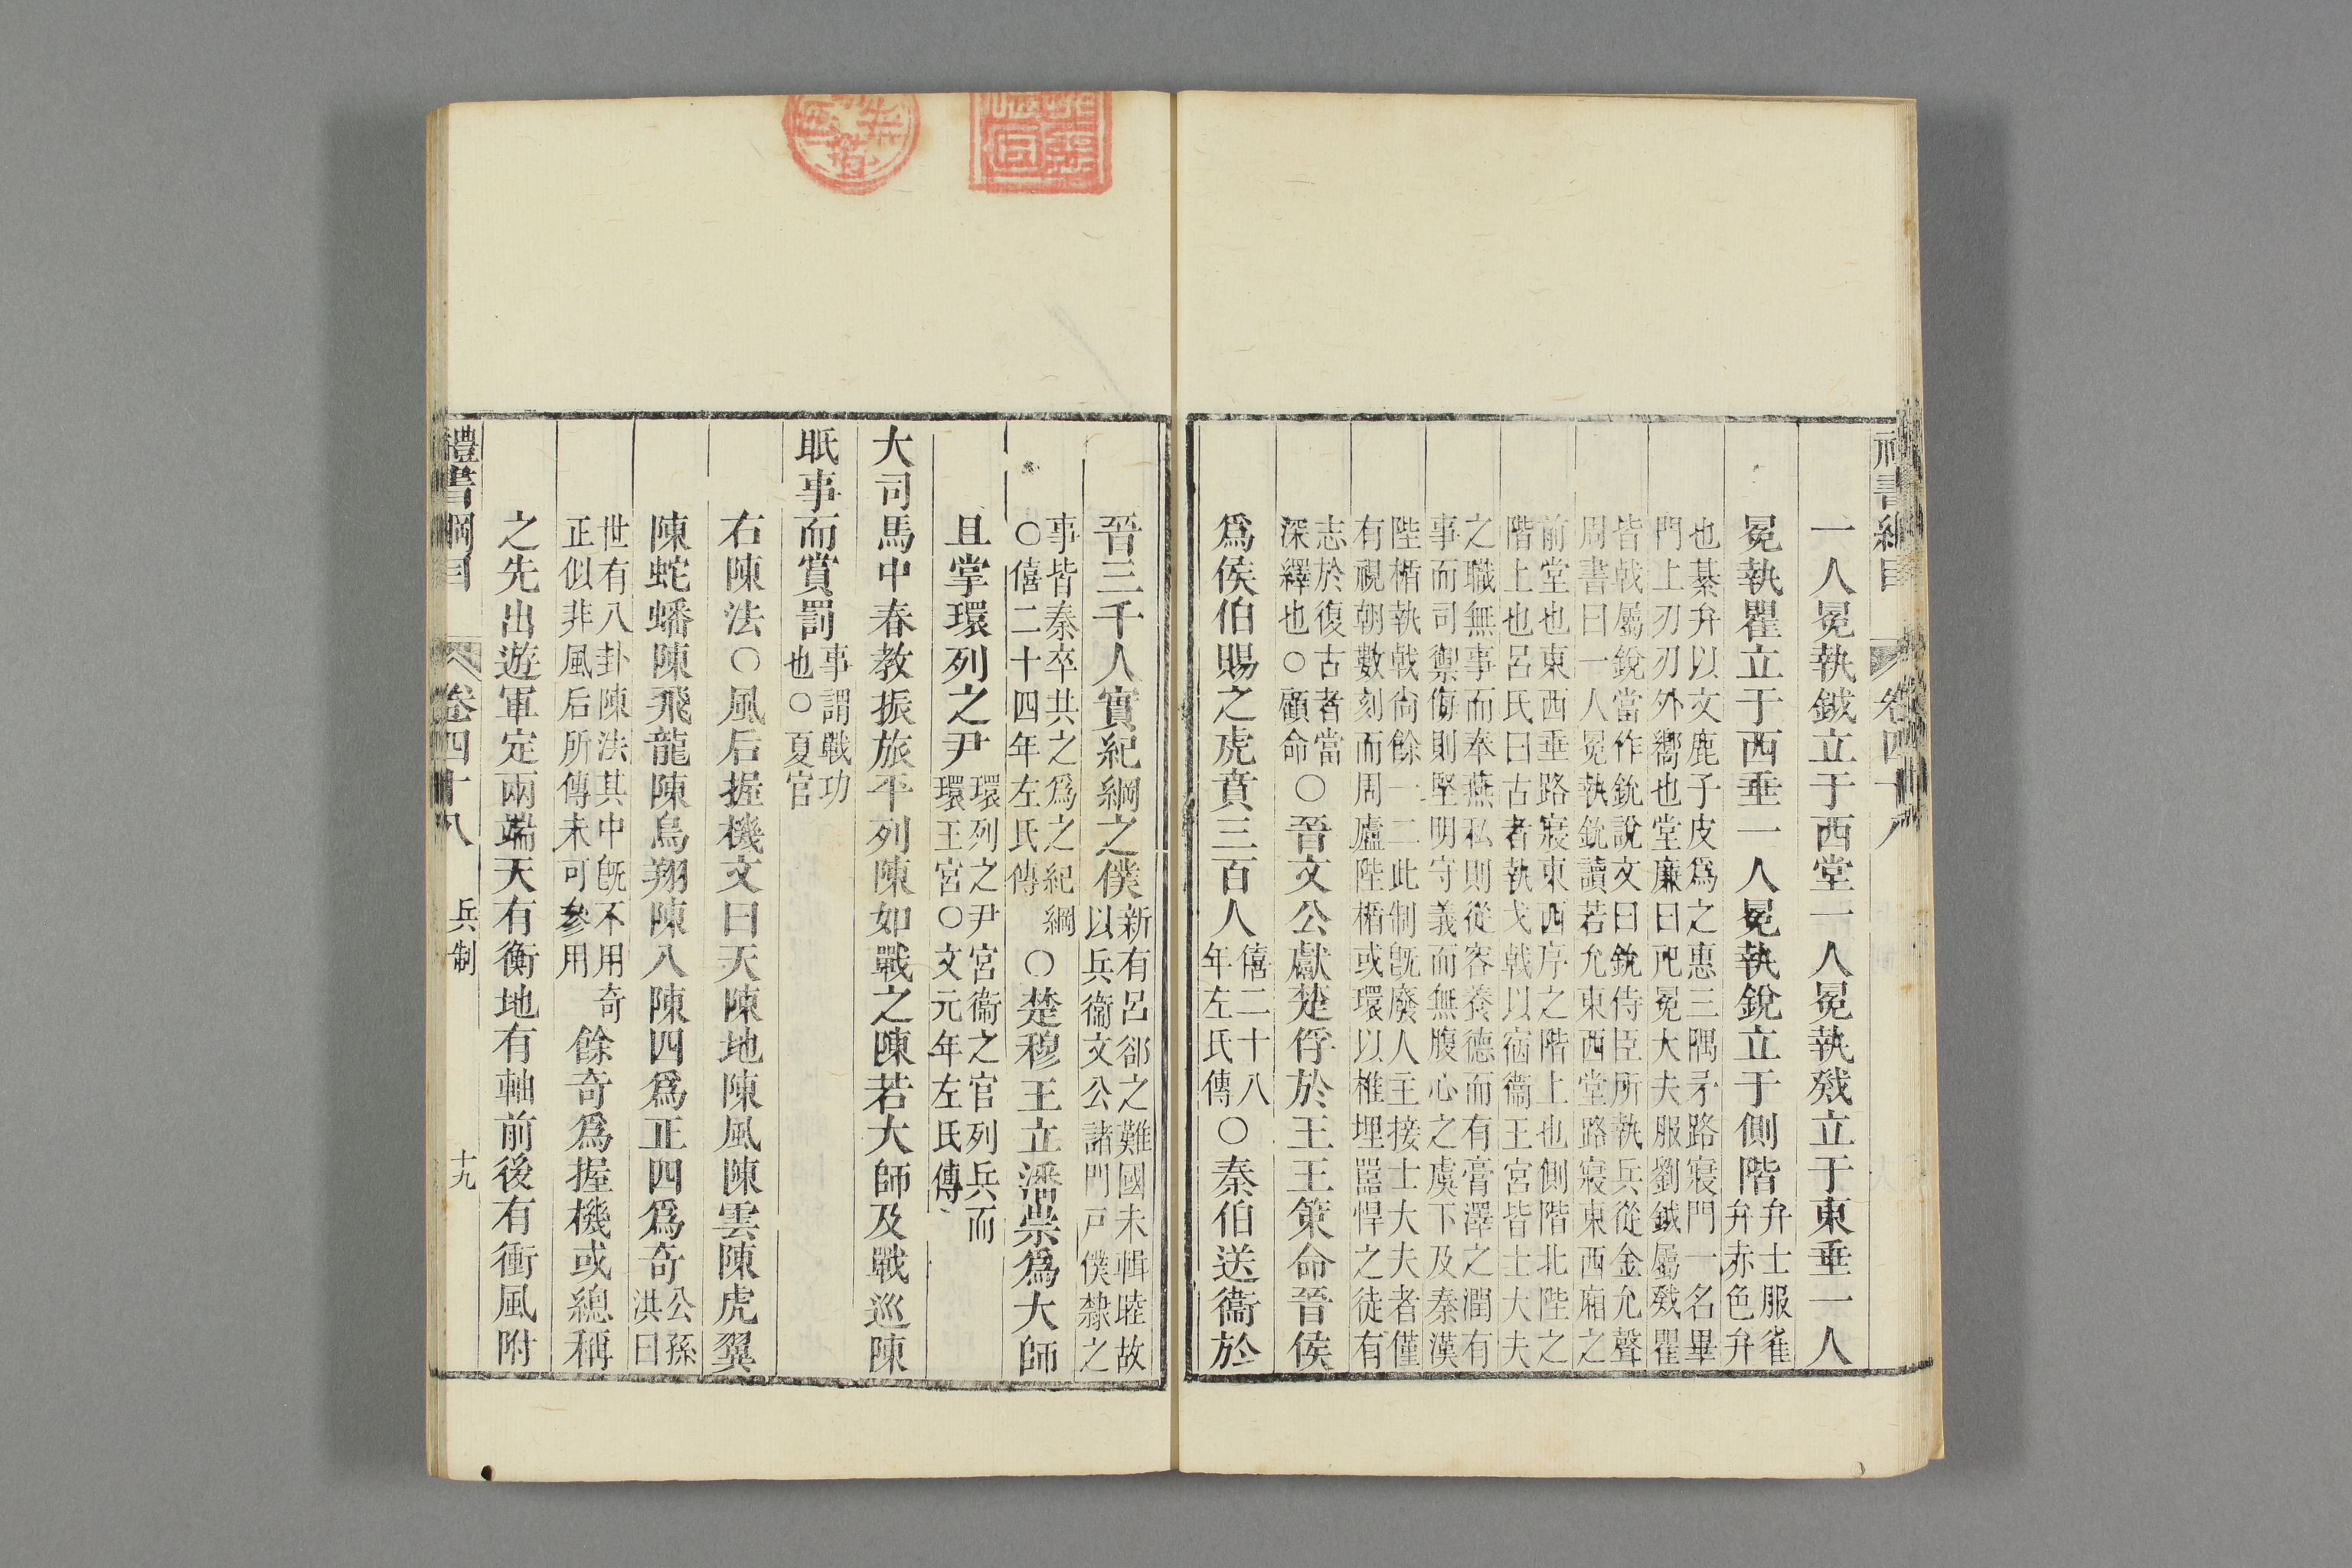 禮書綱目 卷四十八
一人冕執鉞立于西堂一人冕執戣立于東垂一人
冕執瞿立于西垂一人冕執銳立于側階弁士服雀弁赤色弁
也綦弁以文鹿子皮爲之惠三隅矛路寢門一名畢門上刃刃外嚮也堂廉曰戺冕大夫服劉鉞屬戣瞿
皆戟屬銳當作鈗說文曰鈗侍臣所執兵從金允聲周書曰一人冕執鈗讀若允東西堂路寢東西廂之
前堂也東西垂路寢東西序之階上也側階北陛之階上也呂氏曰古者執戈戟以宿衞王宮皆士大夫
之職無事而奉燕私則從容養德而有膏澤之潤有事而司禦侮則堅明守義而無腹心之虞下及秦漢
陛楯執戟尙餘一二此制旣廢人主接士大夫者僅有視朝數刻而周廬陛楯或環以椎埋嚚悍之徒有
志於復古者當深繹也○顧命○晉文公獻楚俘於王王策命晉侯
爲侯伯賜之虎賁三百人僖二十八年左氏傳○秦伯送衞於
晉三千人實紀綱之僕新有呂郤之難國未輯睦故以兵衞文公諸門戸僕隸之
事皆秦卒共之爲之紀綱○僖二十四年左氏傳○楚穆王立潘崇爲大師
且掌環列之尹環列之尹宮衞之官列兵而環王宮○文元年左氏傳
大司馬中春教振旅平列陳如戰之陳若大師及戰巡陳
眡事而賞罰事謂戰功也○夏官
右陳法○風后握機文曰天陳地陳風陳雲陳虎翼
陳蛇蟠陳飛龍陳鳥翔陳八陳四爲正四爲奇公孫洪曰
世有八卦陳法其中旣不用奇正似非風后所傳未可參用餘奇爲握機或總稱
之先出遊軍定兩端天有衡地有軸前後有衝風附
禮書綱目 卷四十八 兵制 十九